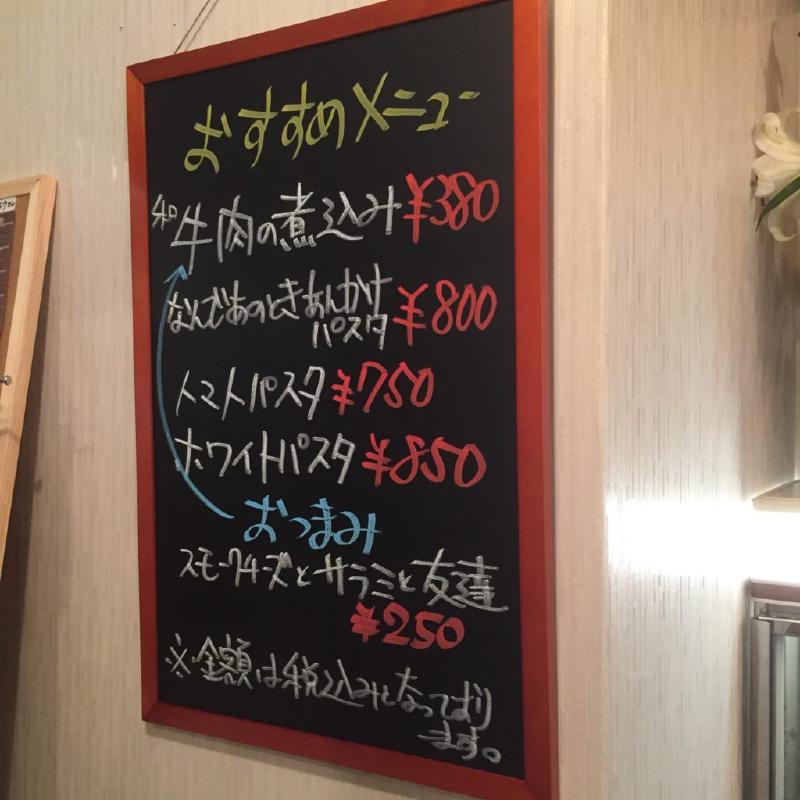 おすすめメニュー
牛肉の煮込み ¥380
なんであのときあんかけ
パスタ ¥800
トマトパスタ ¥750
ホワイトパスタ ¥850
おつまみ
スモークチーズとサラミと友達
¥250
※金額は税込みとなっており
ます。